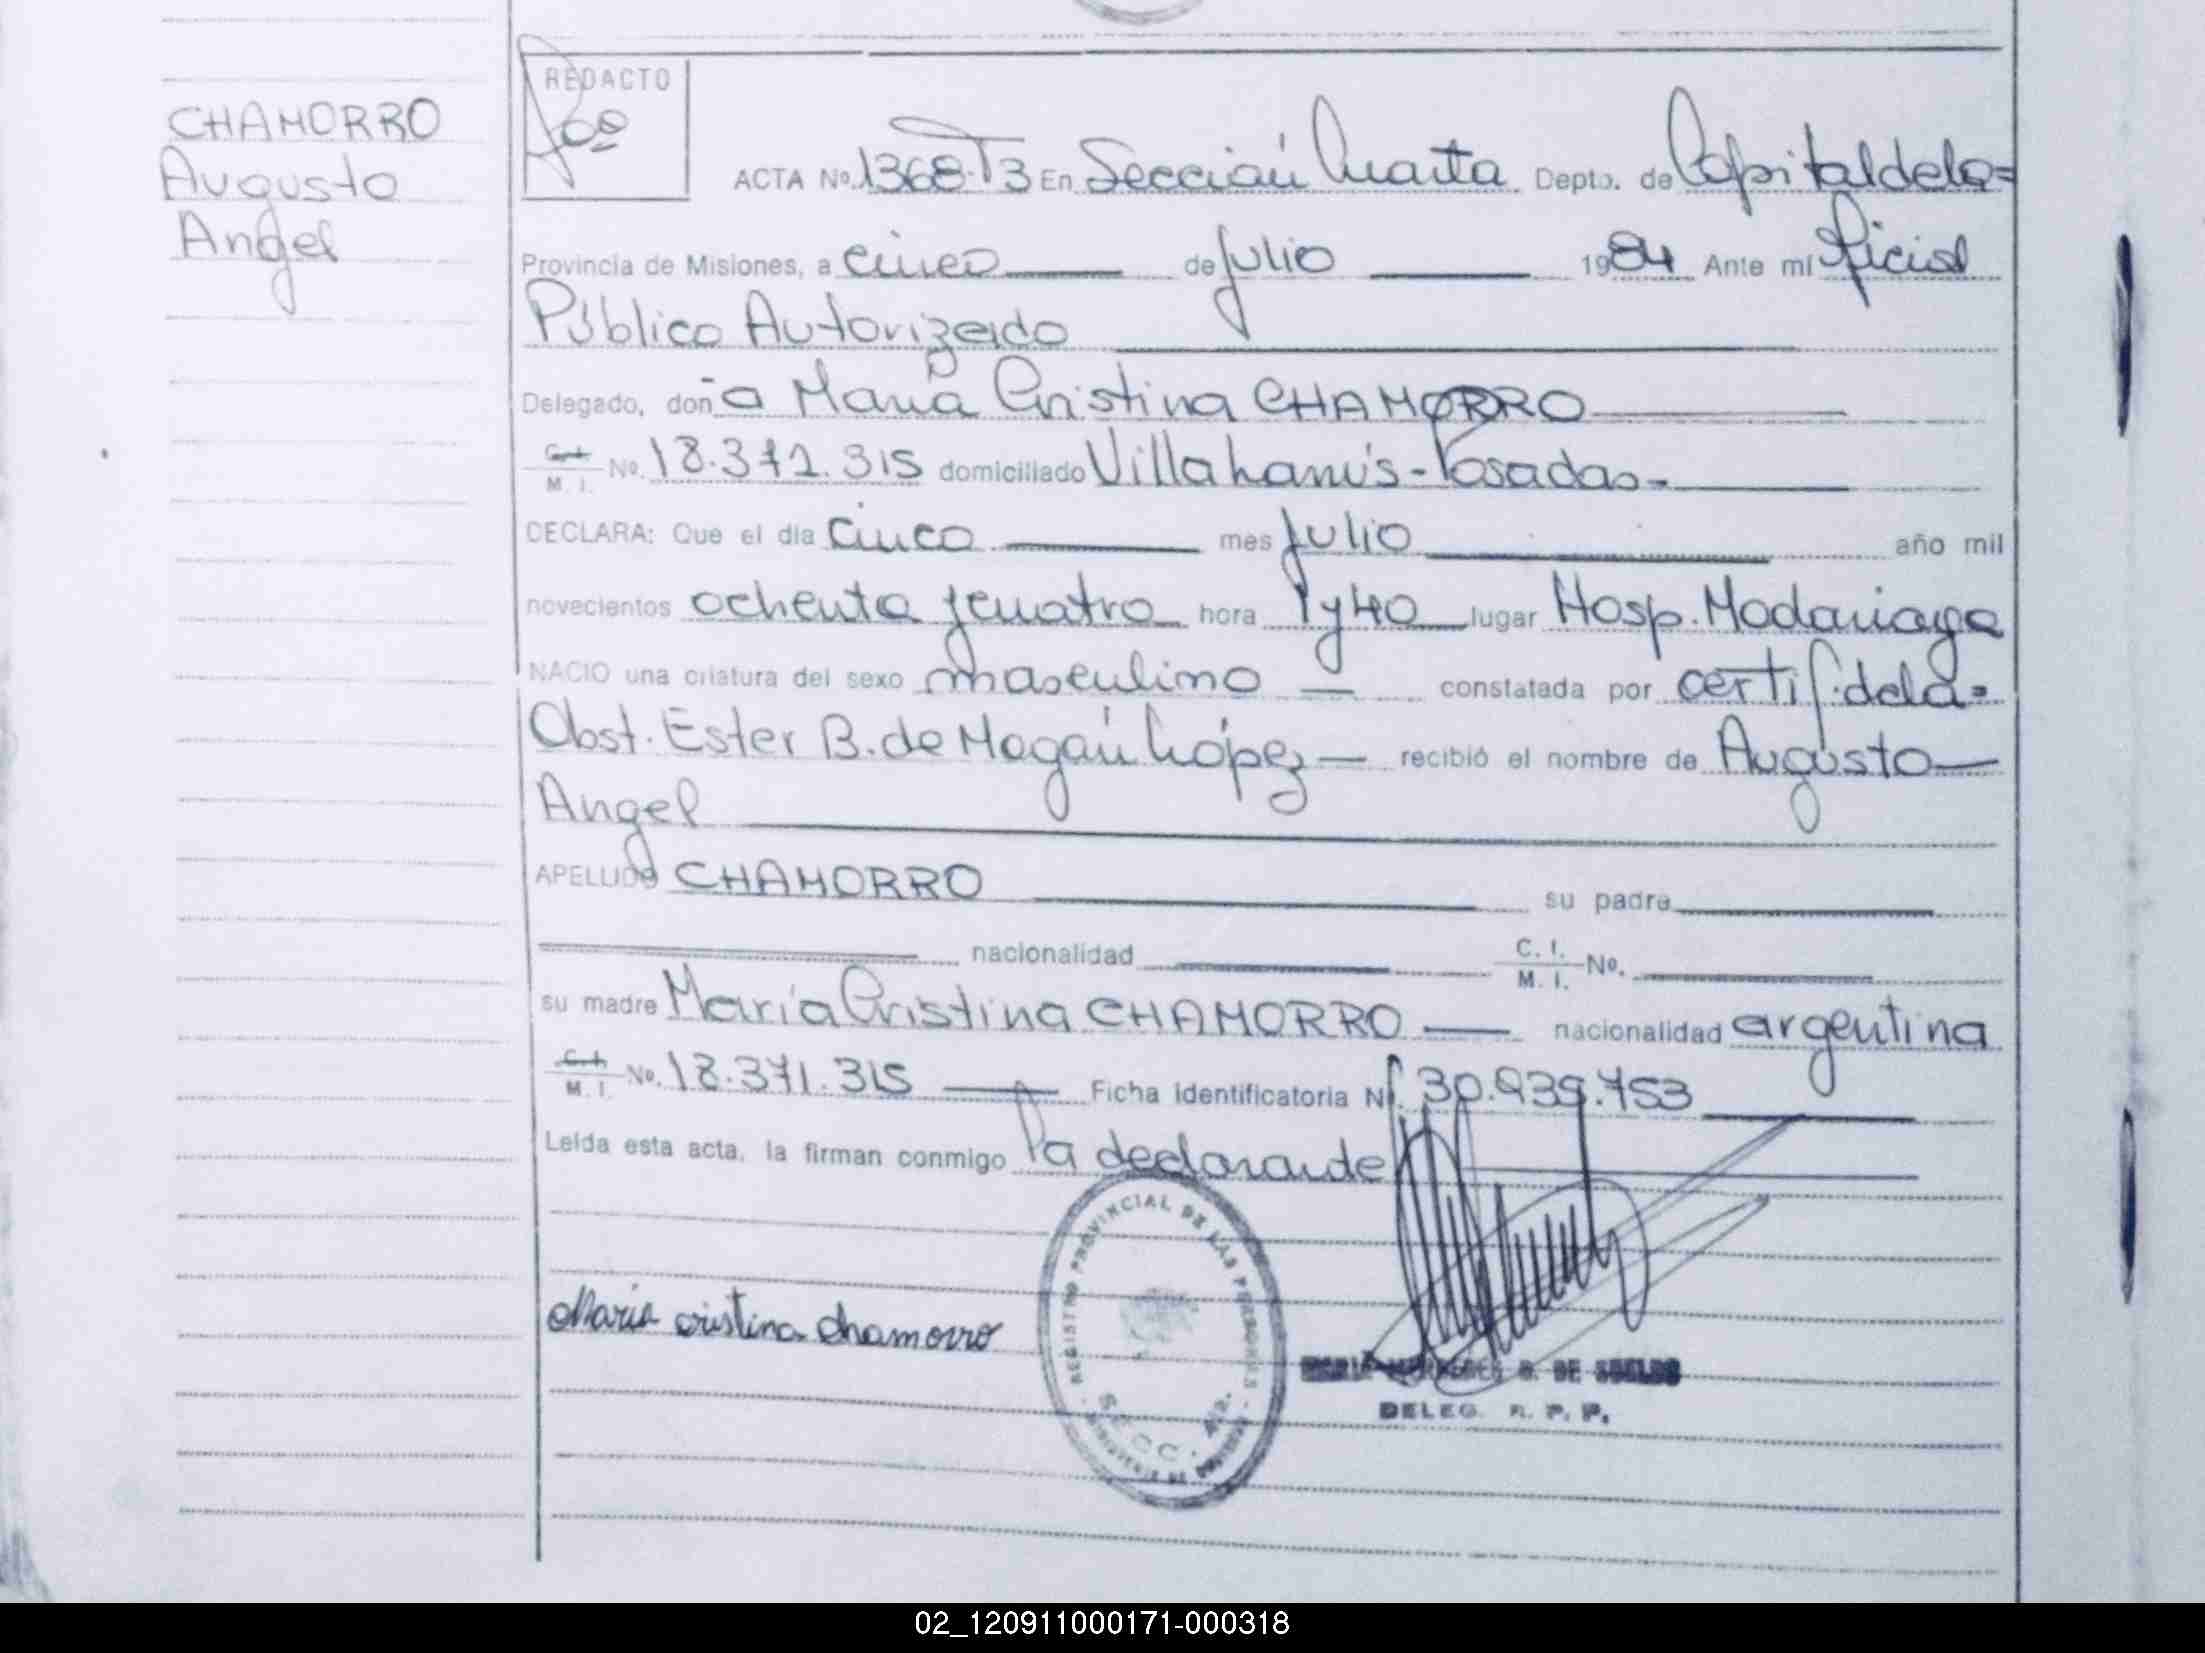 CHAMORRO
Augusto
Angel
REDACTO
ACTA Nº 1368-T3 En Sección Cuarta Depto. de Capital de la=
Provincia de Misiones, a cinco de julio 1984 Ante mí Oficial
Público Autorizado
Delegado, doña María Cristina CHAMORRO
C.I. M. I. No. 18.371.315 domiciliado Villa Lanús - Posadas-
DECLARA: Que el día cinco mes julio año mil
novecientos ochenta y cuatro hora 1 y 40 lugar Hosp. Madariaga
NACIO una criatura del sexo masculino constatada por certif. de la=
Obst. Ester B. de Magán López recibió el nombre de Augusto
Angel
APELLIDO CHAMORRO su padre
nacionalidad C. I. M. I. No.
su madre María Cristina CHAMORRO nacionalidad argentina
C.I. M. I. No. 18.371.315 Ficha Identificatoria Nº. 30.939.753
Leída esta acta, la firman conmigo la declarante
María cristina chamorro
REGISTRO PROVINCIAL DE LAS PERSONAS
SECC. 4ta.
DE SUELDO
DELEG. R. P. P.
02_120911000171-000318